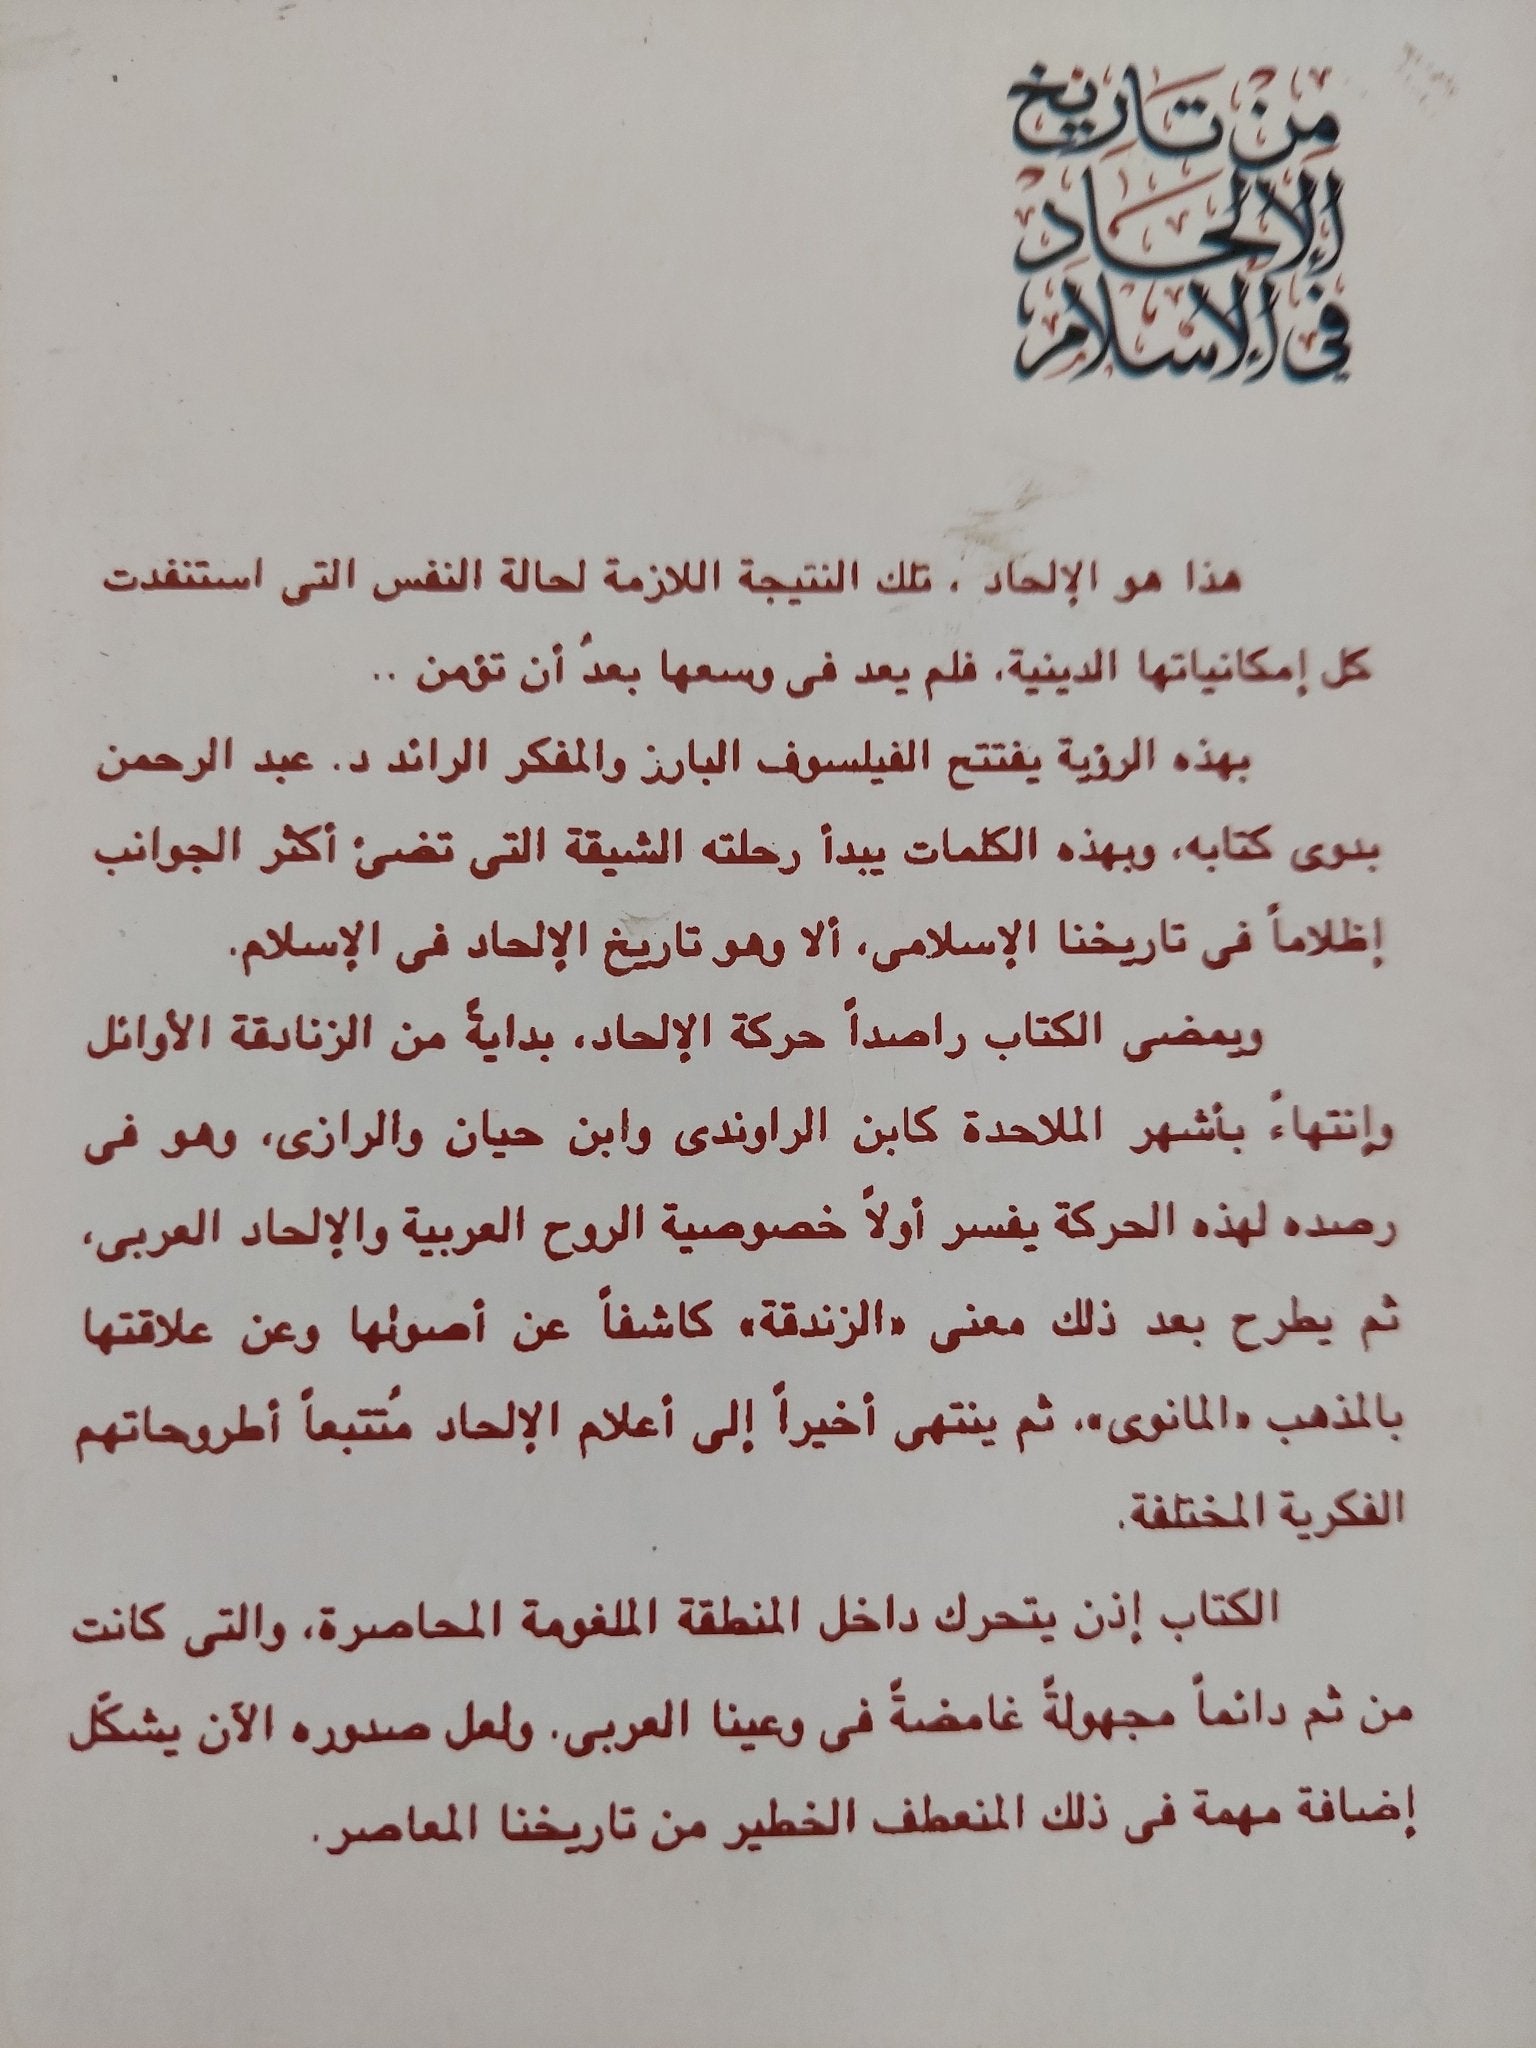 من تاريخ
الإلحاد
في الإسلام
هذا هو الإلحاد ، تلك النتيجة اللازمة لحالة النفس التى استنفدت
كل إمكانياتها الدينية، فلم يعد فى وسعها بعدُ أن تؤمن ..
بهذه الرؤية يفتتح الفيلسوف البارز والمفكر الرائد د. عبد الرحمن
بدوى كتابه، وبهذه الكلمات يبدأ رحلته الشيقة التى تضئ أكثر الجوانب
إظلاماً فى تاريخنا الإسلامى، ألا وهو تاريخ الإلحاد فى الإسلام.
ويمضى الكتاب راصداً حركة الإلحاد، بدايةً من الزنادقة الأوائل
وإنتهاءً بأشهر الملاحدة كابن الراوندى وابن حيان والرازى، وهو فى
رصده لهذه الحركة يفسر أولاً خصوصية الروح العربية والإلحاد العربى،
ثم يطرح بعد ذلك معنى «الزندقة» كاشفاً عن أصولها وعن علاقتها
بالمذهب «المانوى»، ثم ينتهى أخيراً إلى أعلام الإلحاد مُتتبعاً أطروحاتهم
الفكرية المختلفة.
الكتاب إذن يتحرك داخل المنطقة الملغومة المحاصرة، والتى كانت
من ثم دائماً مجهولةً غامضةً فى وعينا العربى. ولعل صدوره الآن يشكّل
إضافة مهمة فى ذلك المنعطف الخطير من تاريخنا المعاصر.